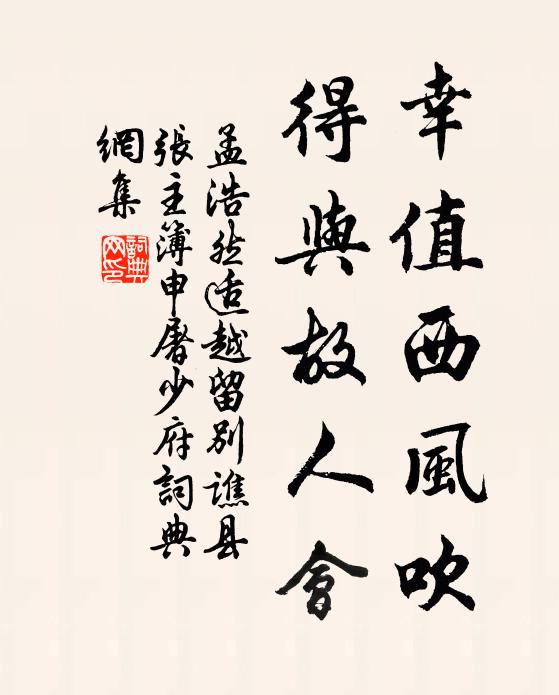 幸值西風吹
得與故人會
孟浩然适越留別譙县
張主簿申屠少府詞典
網集
詞典
网印